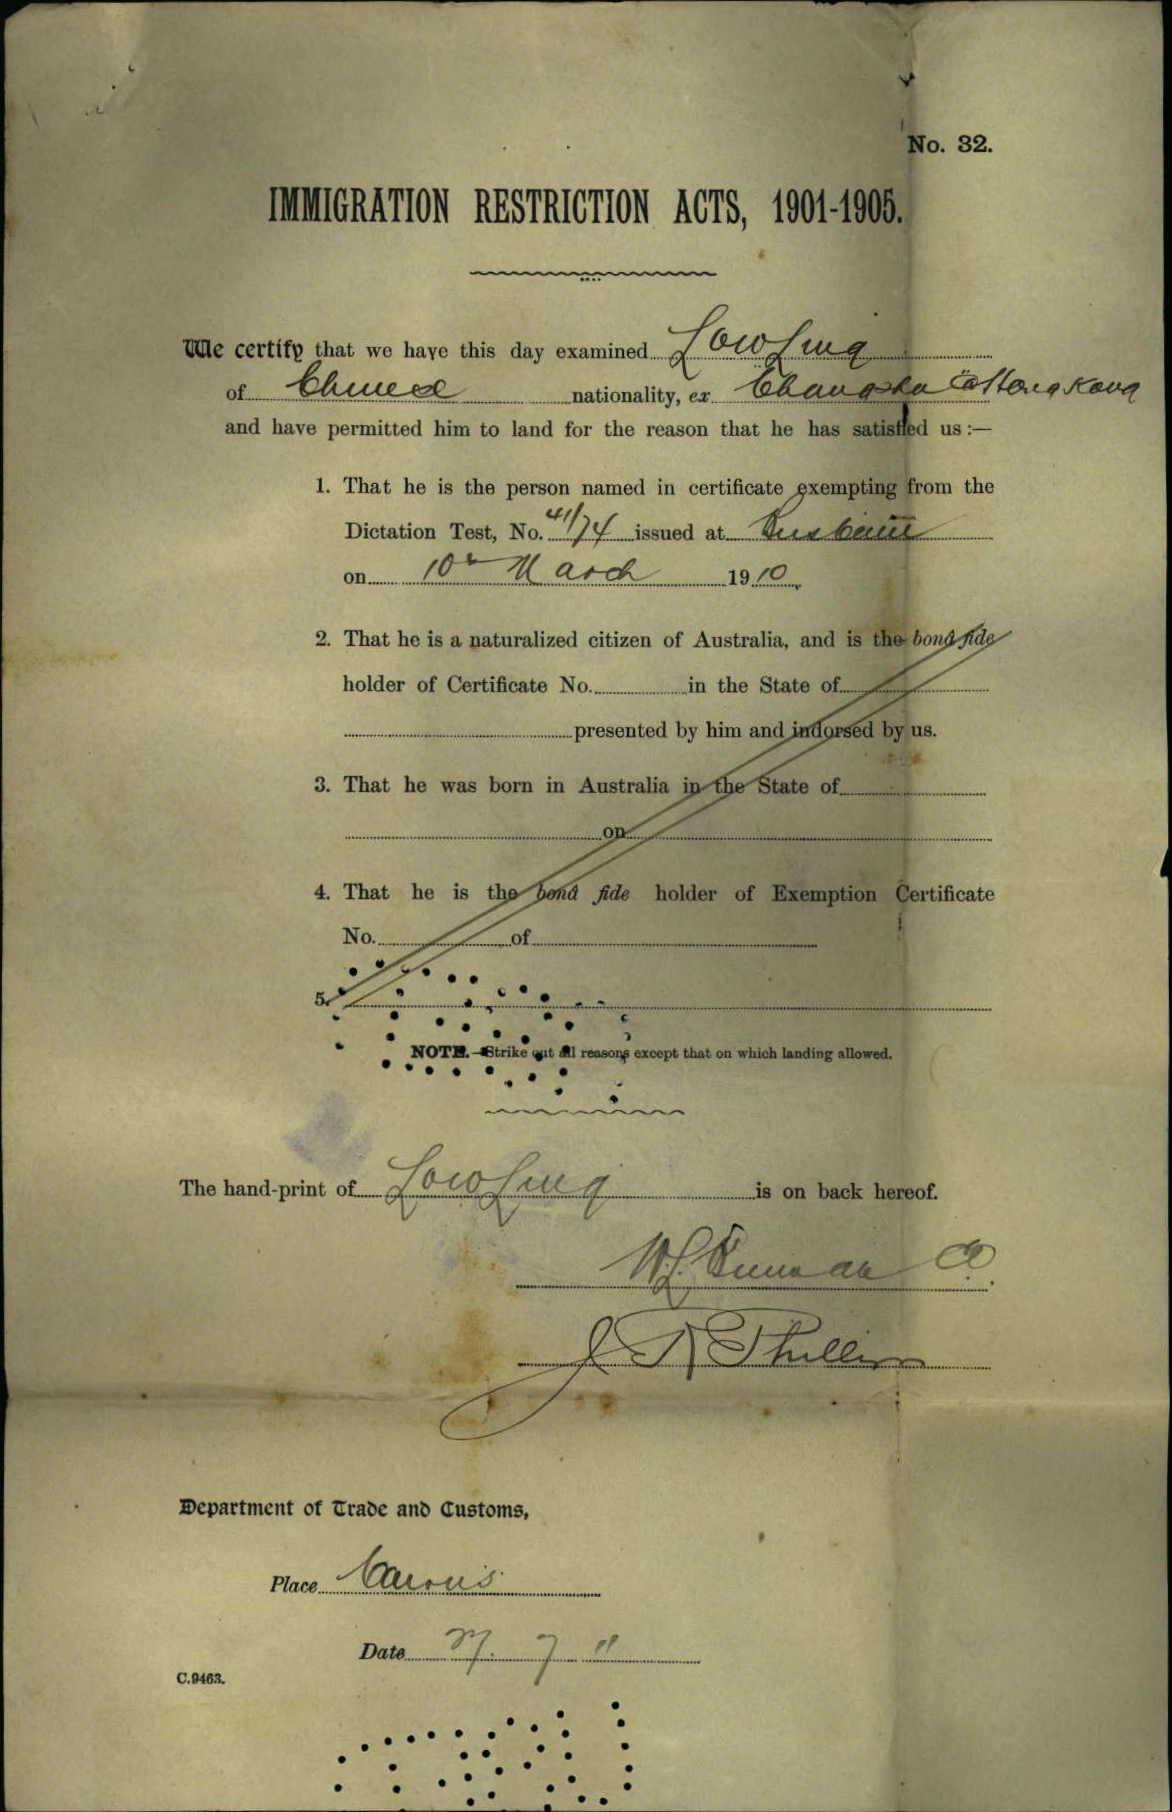 No. 32.
IMMIGRATION RESTRICTION ACTS, 1901-1905.
We certify that we have this day examined Low Ling
of Chinese nationality, ex Changsha Hong Kong
and have permitted him to land for the reason that he has satisfied us :—
1. That he is the person named in certificate exempting from the
Dictation Test, No. 41/74 issued at Brisbane
on 10th March 1910.
2. That he is a naturalized citizen of Australia, and is the bonâ fide
holder of Certificate No. in the State of
presented by him and indorsed by us.
3. That he was born in Australia in the State of
on
4. That he is the bonâ fide holder of Exemption Certificate
No. of
5.
NOTE.—Strike out all reasons except that on which landing allowed.
The hand-print of Low Ling is on back hereof.
W.L.
J R Phillips
Department of Trade and Customs,
Place Cairns
Date 27. 7 11
C.9463.